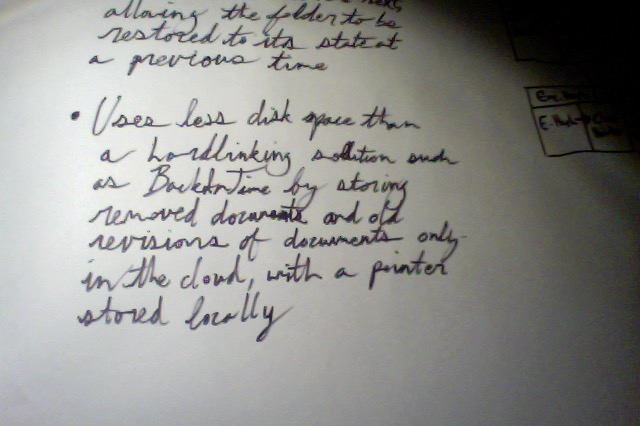 allowing the folder to be
restored to its state at
a previous time
• Uses less disk space than
a hardlinking solution such
as BackInTime by storing
removed documents and old
revisions of documents only
in the cloud, with a pointer
stored locally